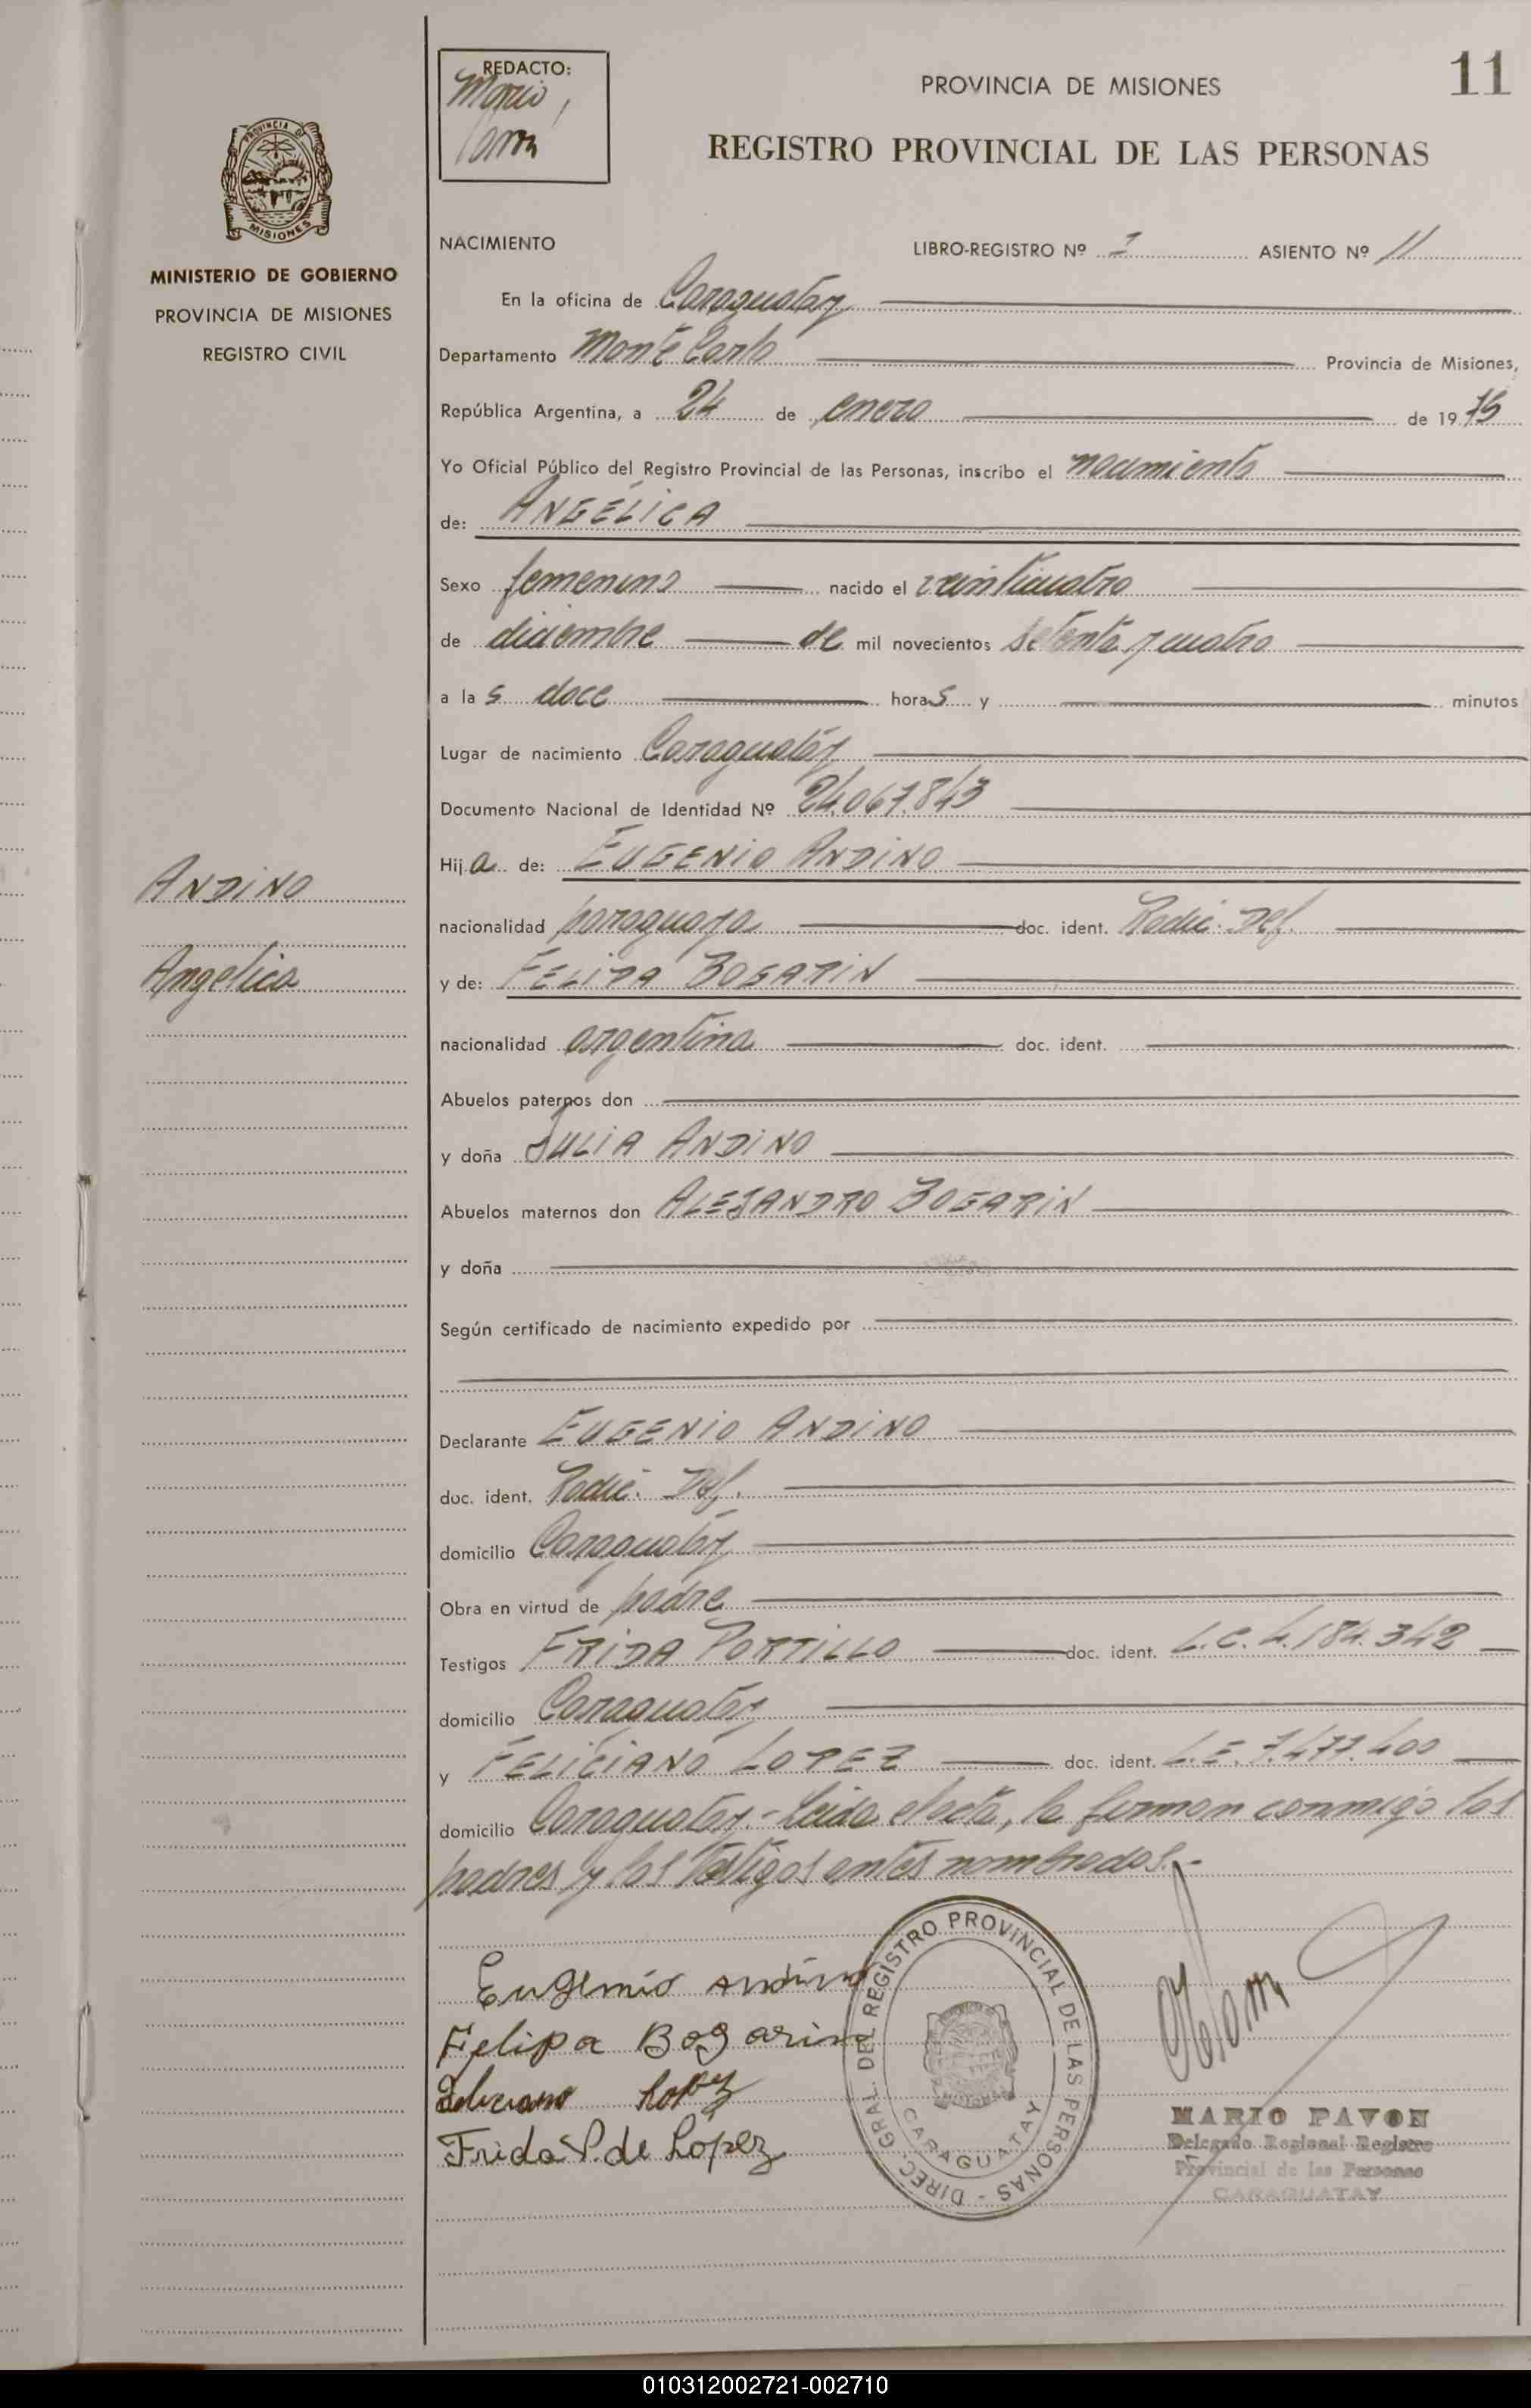 REDACTO:
Mario
PROVINCIA DE MISIONES
11
REGISTRO PROVINCIAL DE LAS PERSONAS
PROVINCIA DE
MISIONES
MINISTERIO DE GOBIERNO
PROVINCIA DE MISIONES
REGISTRO CIVIL
NACIMIENTO LIBRO-REGISTRO Nº I ASIENTO Nº 11
En la oficina de Caraguatay
Departamento Monte Carlo Provincia de Misiones,
República Argentina, a 24 de enero de 1975
Yo Oficial Público del Registro Provincial de las Personas, inscribo el nacimiento
de: ANGÉLICA
Sexo femenino nacido el veinticuatro
de diciembre de mil novecientos setenta y cuatro
a las doce horas y minutos
Lugar de nacimiento Caraguatáy
Documento Nacional de Identidad Nº 24.067.843
Hija de: EUGENIO ANDINO
ANDINO
nacionalidad paraguaya doc. ident. Radic. Def.
Angélica
y de: FELIPA BOGARIN
nacionalidad argentina doc. ident.
Abuelos paternos don
y doña JULIA ANDINO
Abuelos maternos don ALEJANDRO BOGARIN
y doña
Según certificado de nacimiento expedido por
Declarante EUGENIO ANDINO
doc. ident. Radic. Def.
domicilio Caraguatáy
Obra en virtud de padre
Testigos FRIDA PORTILLO doc. ident. L.C. 4.184.342
domicilio Caraguatay
y FELICIANO LOPEZ doc. ident. L.E. 7.477.400
domicilio Caraguatay.- Leída el acta, la firman conmigo los
padres y los testigos antes nombrados.-
Eugenio Andino
Felipa Bogarin
Feliciano Lopez
Frida P. de López
DIREC. GRAL. DEL REGISTRO PROVINCIAL DE LAS PERSONAS -
CARAGUATAY
MARIO PAVON
Delegado Regional Registro
Provincial de las Personas
CARAGUATAY
010312002721-002710